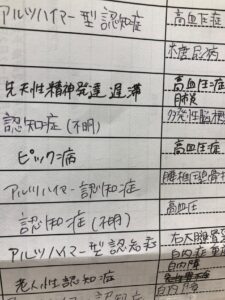 アルツハイマー型認知症 高血圧症
糖尿病
先天性精神発達遅滞 高血圧症
肺炎
認知症(不明) 多発性脳梗
ピック病 高血圧症
アルツハイマー認知症 腰椎圧迫骨
認知症(不明) 高血圧
アルツハイマー型認知症 右大腿骨
白内症
老人性認知症 白内障